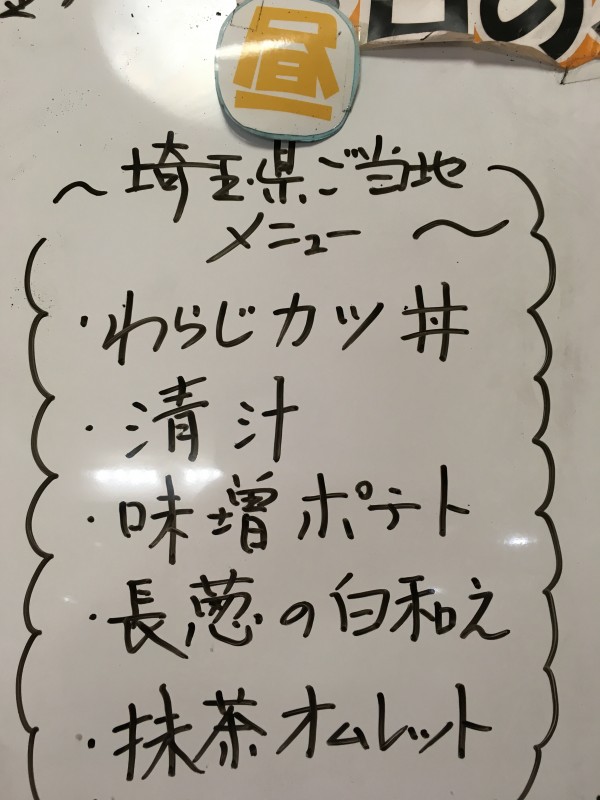 日の
昼
～埼玉県ご当地
メニュー～
・わらじカツ丼
・清汁
・味増ポテト
・長葱の白和え
・抹茶オムレット